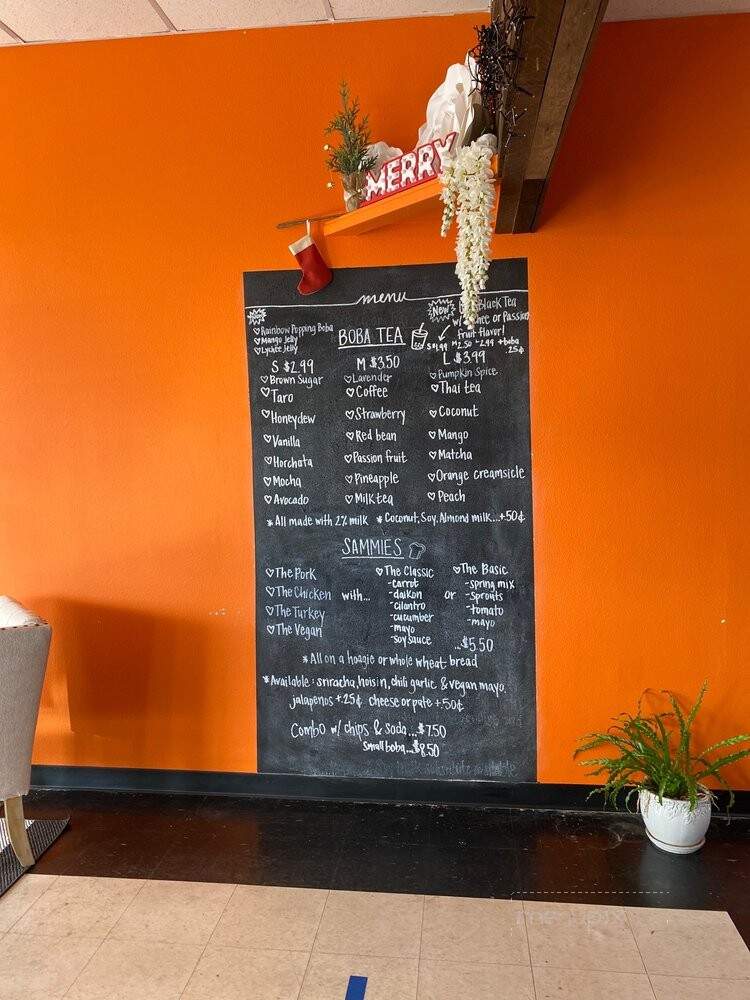 MERRY
menu
New
Black Tea
w/ or Passion
fruit flavor!
S $1.99 M 2.50 L 2.99 +boba
.25¢
Rainbow Popping Boba
Mango Jelly
Lychee Jelly
BOBA TEA
S $2.99 M $3.50 L $3.99
Brown Sugar
Taro
Honeydew
Vanilla
Horchata
Mocha
Avocado
Lavender
Coffee
Strawberry
Red bean
Passion fruit
Pineapple
Milk tea
Pumpkin Spice
Thai tea
Coconut
Mango
Matcha
Orange creamsicle
Peach
*All made with 2% milk *Coconut, Soy, Almond milk...+.50¢
SAMMIES
The Pork
The Chicken
The Turkey
The Vegan
with...
The Classic
-carrot
-daikon
-cilantro
-cucumber
-mayo
-soy sauce
or
The Basic
-spring mix
-sprouts
-tomato
-mayo
...$5.50
*All on a hoagie or whole wheat bread
*Available: sriracha, hoisin, chili garlic & vegan mayo.
jalapenos +.25¢ cheese or pate +.50¢
Combo w/ chips & soda...$7.50
Small boba...$8.50